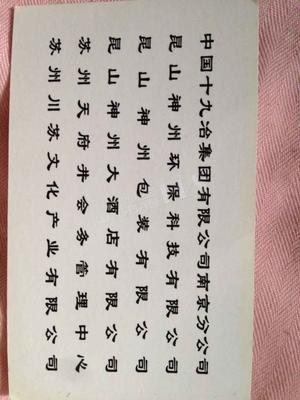 中国十九冶集团有限公司南京分公司
昆山神州环保科技有限公司
昆山神州包装有限公司
昆山神州大酒店有限公司
苏州天府井会务管理中心
苏州川苏文化产业有限公司